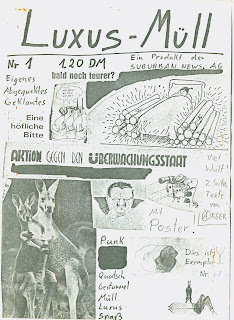 LUXUS-MÜLL
Nr 1
1,20 DM
Ein Produkt der
SUBURBAN NEWS, AG
bald noch teurer?
Eigenes
Abgequältes
Geklautes
Eine
höfliche
Bitte
AKTION GEGEN DEN ÜBERWACHUNGSSTAAT
Viel
Inhalt!
2 Seiten
Texte
von
Mit
Poster.
Punk
Quatsch
Gestammel
Müll
Luxus
Spaß
Dies ist
Exemplar
Nr.